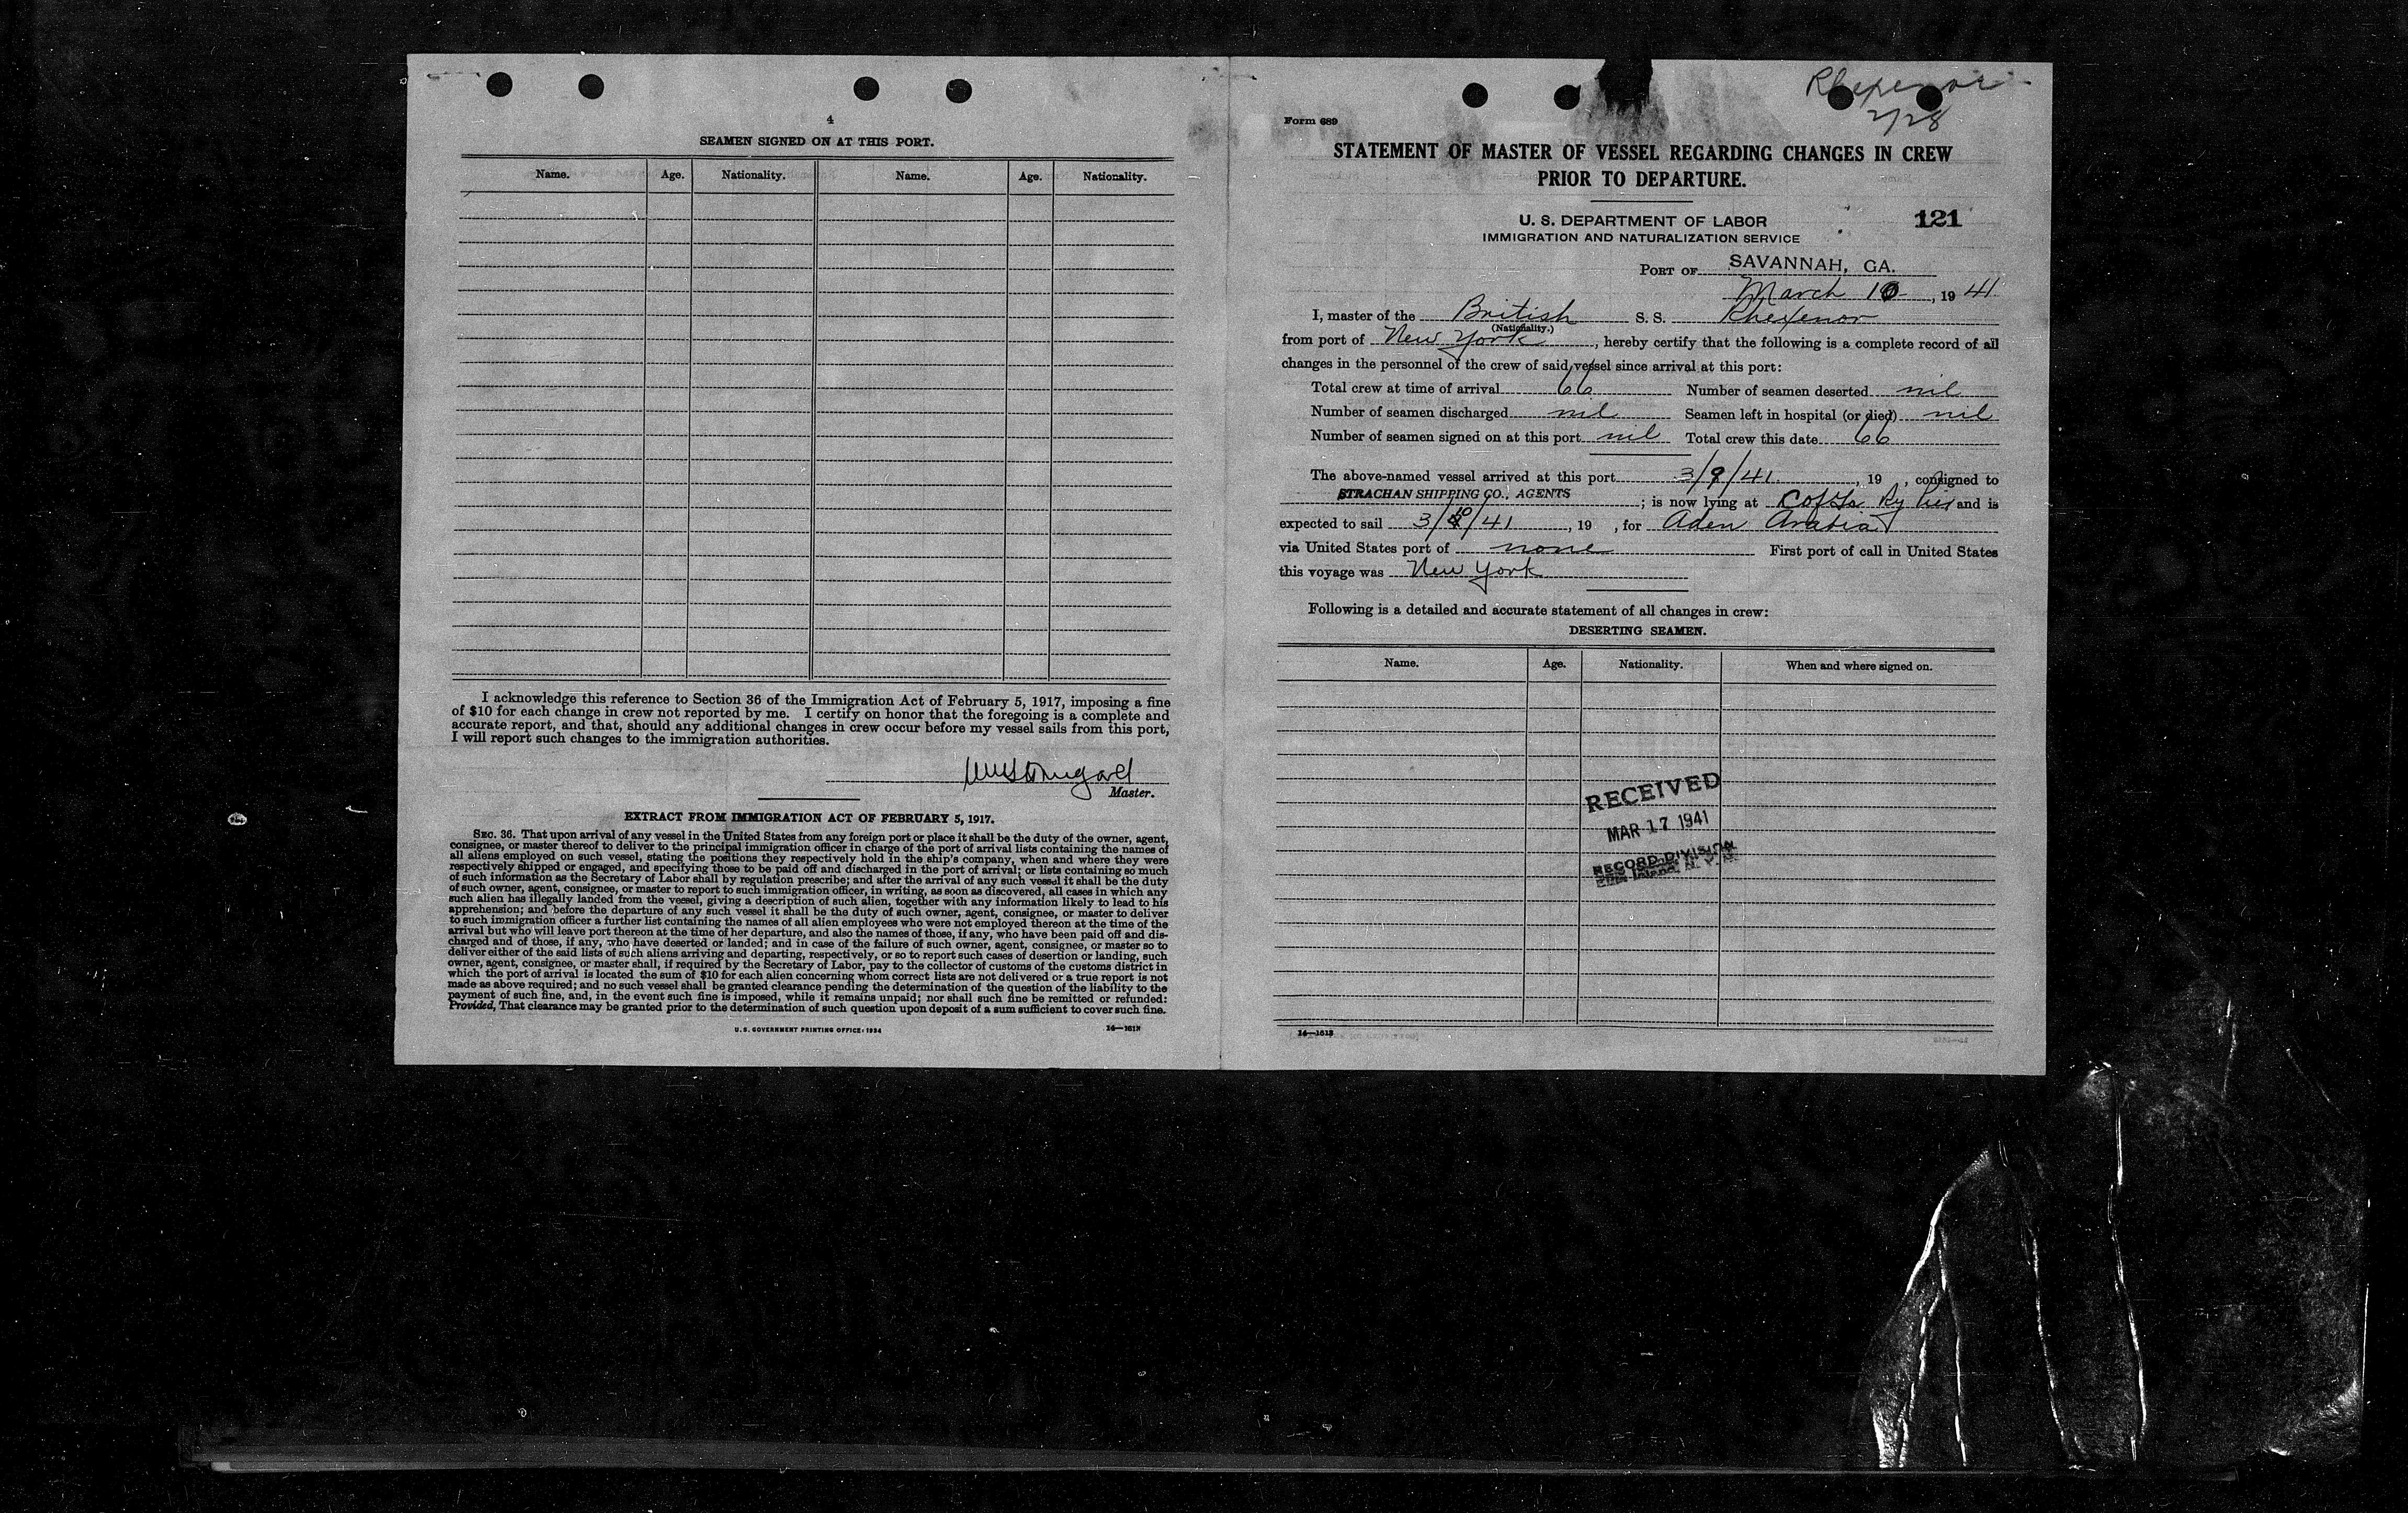 4
SEAMEN SIGNED ON AT THIS PORT.
Name. Age. Nationality. Name. Age. Nationality.
I acknowledge this reference to Section 36 of the Immigration Act of February 5, 1917, imposing a fine
of $10 for each change in crew not reported by me. I certify on honor that the foregoing is a complete and
accurate report, and that, should any additional changes in crew occur before my vessel sails from this port,
I will report such changes to the immigration authorities.
Master.
EXTRACT FROM IMMIGRATION ACT OF FEBRUARY 5, 1917.
SEC. 36. That upon arrival of any vessel in the United States from any foreign port or place it shall be the duty of the owner, agent,
consignee, or master thereof to deliver to the principal immigration officer in charge of the port of arrival lists containing the names of
all aliens employed on such vessel, stating the positions they respectively hold in the ship's company, when and where they were
respectively shipped or engaged, and specifying those to be paid off and discharged in the port of arrival; or lists containing so much
of such information as the Secretary of Labor shall by regulation prescribe; and after the arrival of any such vessel it shall be the duty
of such owner, agent, consignee, or master to report to such immigration officer, in writing, as soon as discovered, all cases in which any
such alien has illegally landed from the vessel, giving a description of such alien, together with any information likely to lead to his
apprehension; and before the departure of any such vessel it shall be the duty of such owner, agent, consignee, or master to deliver
to such immigration officer a further list containing the names of all alien employees who were not employed thereon at the time of the
arrival but who will leave port thereon at the time of her departure, and also the names of those, if any, who have been paid off and dis-
charged and of those, if any, who have deserted or landed; and in case of the failure of such owner, agent, consignee, or master so to
deliver either of the said lists of such aliens arriving and departing, respectively, or so to report such cases of desertion or landing, such
owner, agent, consignee, or master shall, if required by the Secretary of Labor, pay to the collector of customs of the customs district in
which the port of arrival is located the sum of $10 for each alien concerning whom correct lists are not delivered or a true report is not
made as above required; and no such vessel shall be granted clearance pending the determination of the question of the liability to the
payment of such fine, and, in the event such fine is imposed, while it remains unpaid; nor shall such fine be remitted or refunded:
Provided, That clearance may be granted prior to the determination of such question upon deposit of a sum sufficient to cover such fine.
U. S. GOVERNMENT PRINTING OFFICE: 1934 14—1613
Rhexenor
2/28
Form 689
STATEMENT OF MASTER OF VESSEL REGARDING CHANGES IN CREW
PRIOR TO DEPARTURE.
U. S. DEPARTMENT OF LABOR 121
IMMIGRATION AND NATURALIZATION SERVICE
PORT OF SAVANNAH, GA.
March 10, 1941
I, master of the British S. S. Rhexenor
(Nationality.)
from port of New York, hereby certify that the following is a complete record of all
changes in the personnel of the crew of said vessel since arrival at this port:
Total crew at time of arrival 66 Number of seamen deserted nil
Number of seamen discharged nil Seamen left in hospital (or died) nil
Number of seamen signed on at this port nil Total crew this date 66
The above-named vessel arrived at this port 3/9/41, 19 , consigned to
STRACHAN SHIPPING CO., AGENTS; is now lying at CofGa Ry Pier and is
expected to sail 3/10/41, 19 , for Aden Arabia
via United States port of none First port of call in United States
this voyage was New York
Following is a detailed and accurate statement of all changes in crew:
DESERTING SEAMEN.
Name. Age. Nationality. When and where signed on.
RECEIVED
MAR 17 1941
RECORD DIVISION
Ellis Island, N. Y.
14—1613